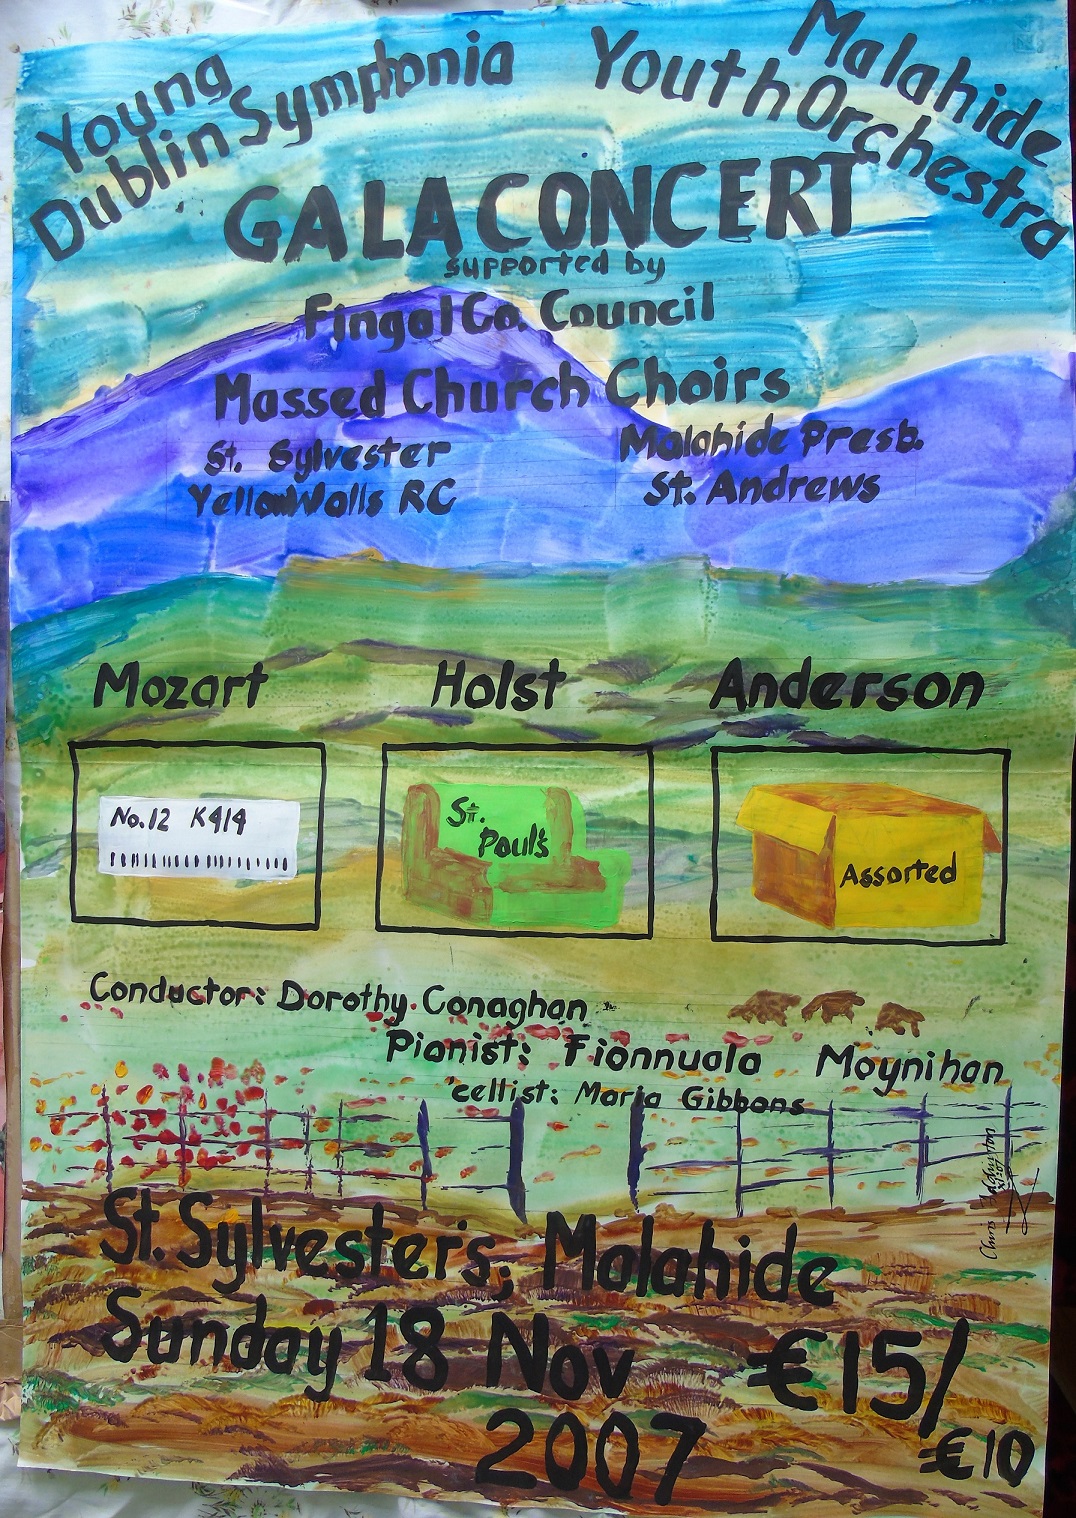 Young
Dublin Symphonia
Malahide
Youth Orchestra
GALA CONCERT
supported by
Fingal Co. Council
Massed Church Choirs
St. Sylvester
Yellow Walls RC
Malahide Presb.
St. Andrews
Mozart Holst Anderson
No.12 K414
St. Paul's
Assorted
Conductor: Dorothy Conaghan
Pianist: Fionnuala Moynihan
cellist: Maria Gibbons
Chris
St. Sylvesters, Malahide
Sunday 18 Nov
2007
€15/
€10